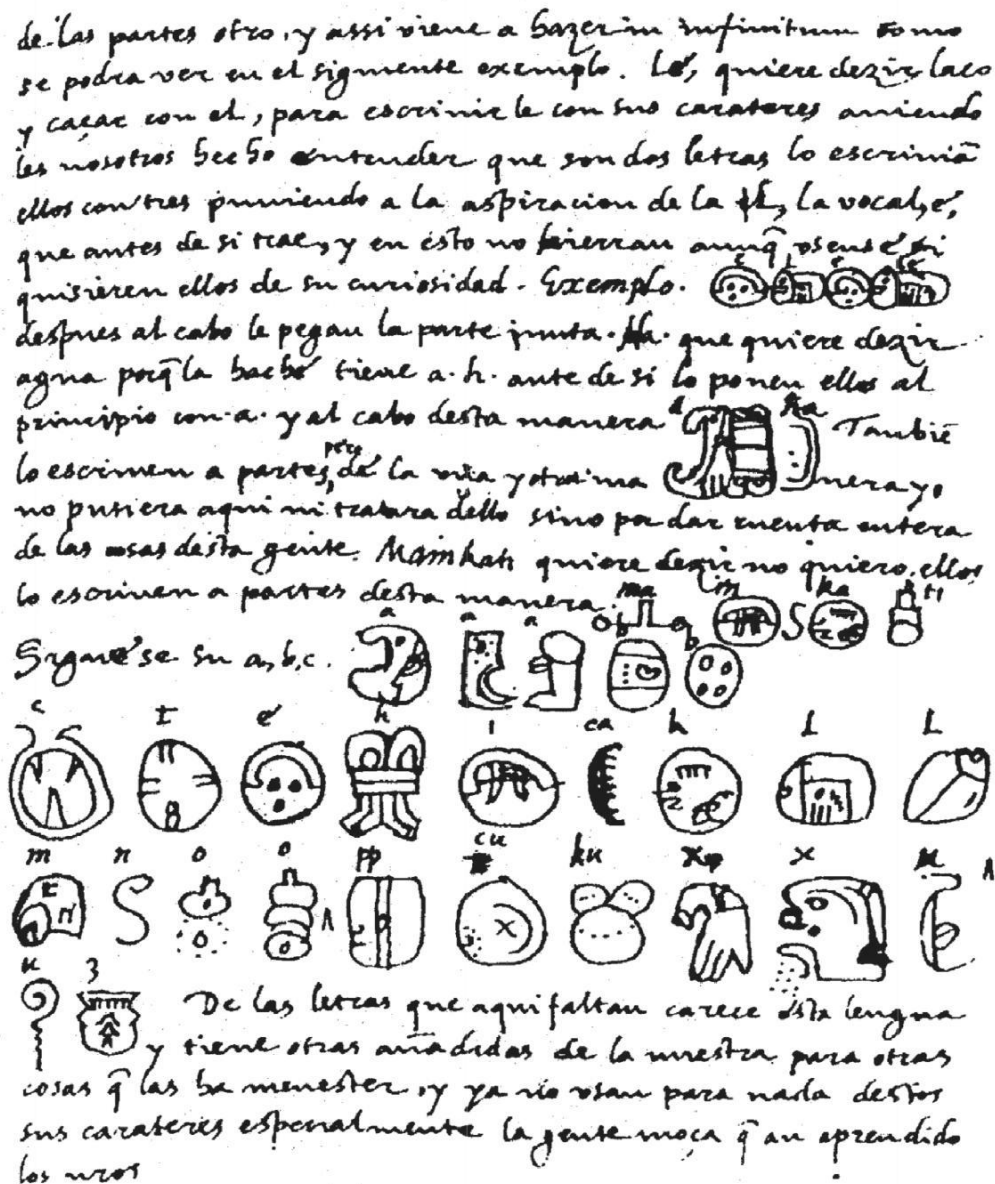 de las partes otro, y assi viene a hazer in infinitum como
se podra ver en el siguiente exemplo. Lé, quiere dezir laço
y caçar con el, para escrivir le con sus carateres aviendo
les nosotros hecho entender que son dos letras lo escrivia
ellos con tres puniendo a la aspiracion de la l, la vocal, é,
que antes de si trae, y en esto no hierran aunq̃ usense si
quisieren ellos de su curiosidad. Exemplo. e l e le
despues al cabo le pegan la parte junta. Ha. que quiere dezir
agua porq̃ la haché tiene a. h. ante de si lo ponen ellos al
principio con. a. y al cabo desta manera a ha Tambiẽ
lo escriven a partes, pero de la una y otra ma nera yo
no pusiera aqui ni tratara dello sino por dar cuenta entera
de las cosas desta gente. Mainkati quiere dezir no quiero, ellos
lo escriven a partes desta manera. ma i n ka ti
Siguese su a, b, c. a a a b b
c t é h i ca k l l
m n o o pp cu ku x x u
u z De las letras que aqui faltan carece esta lengua
y tiene otras añadidas de la nuestra para otras
cosas q̃ las ha menester, y ya no usan para nada destos
sus carateres especialmente la gente moça q̃ an aprendido
los nros